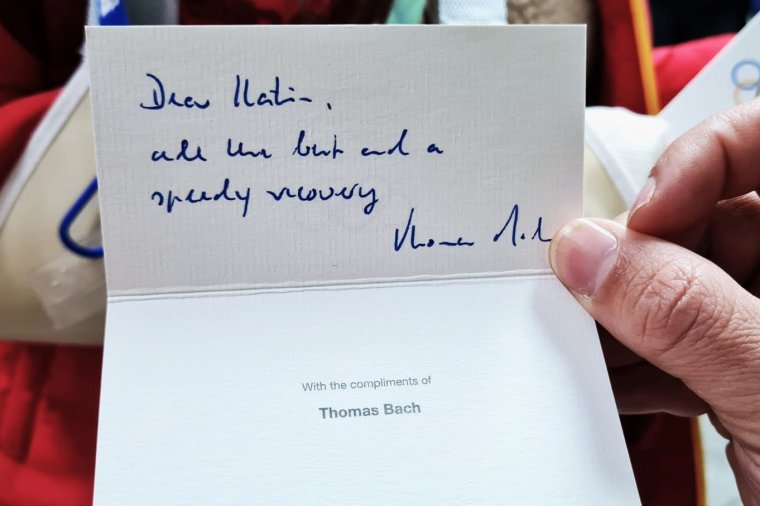 Dear Katin,
all the best and a
speedy recovery
Thomas Bach
With the compliments of
Thomas Bach